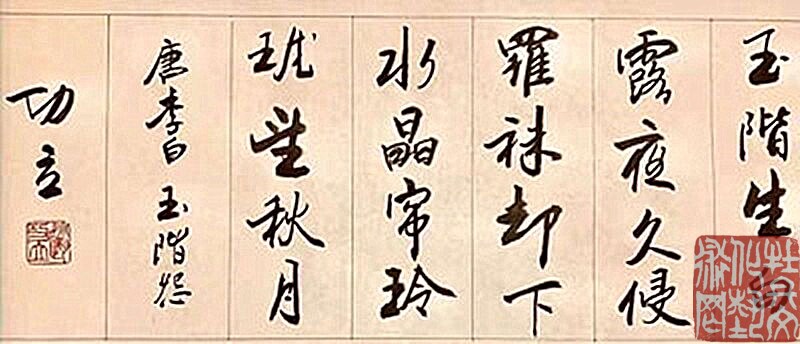 玉階生白
露夜久侵
羅袜却下
水晶帘玲
珑望秋月
唐李白玉階怨
功立